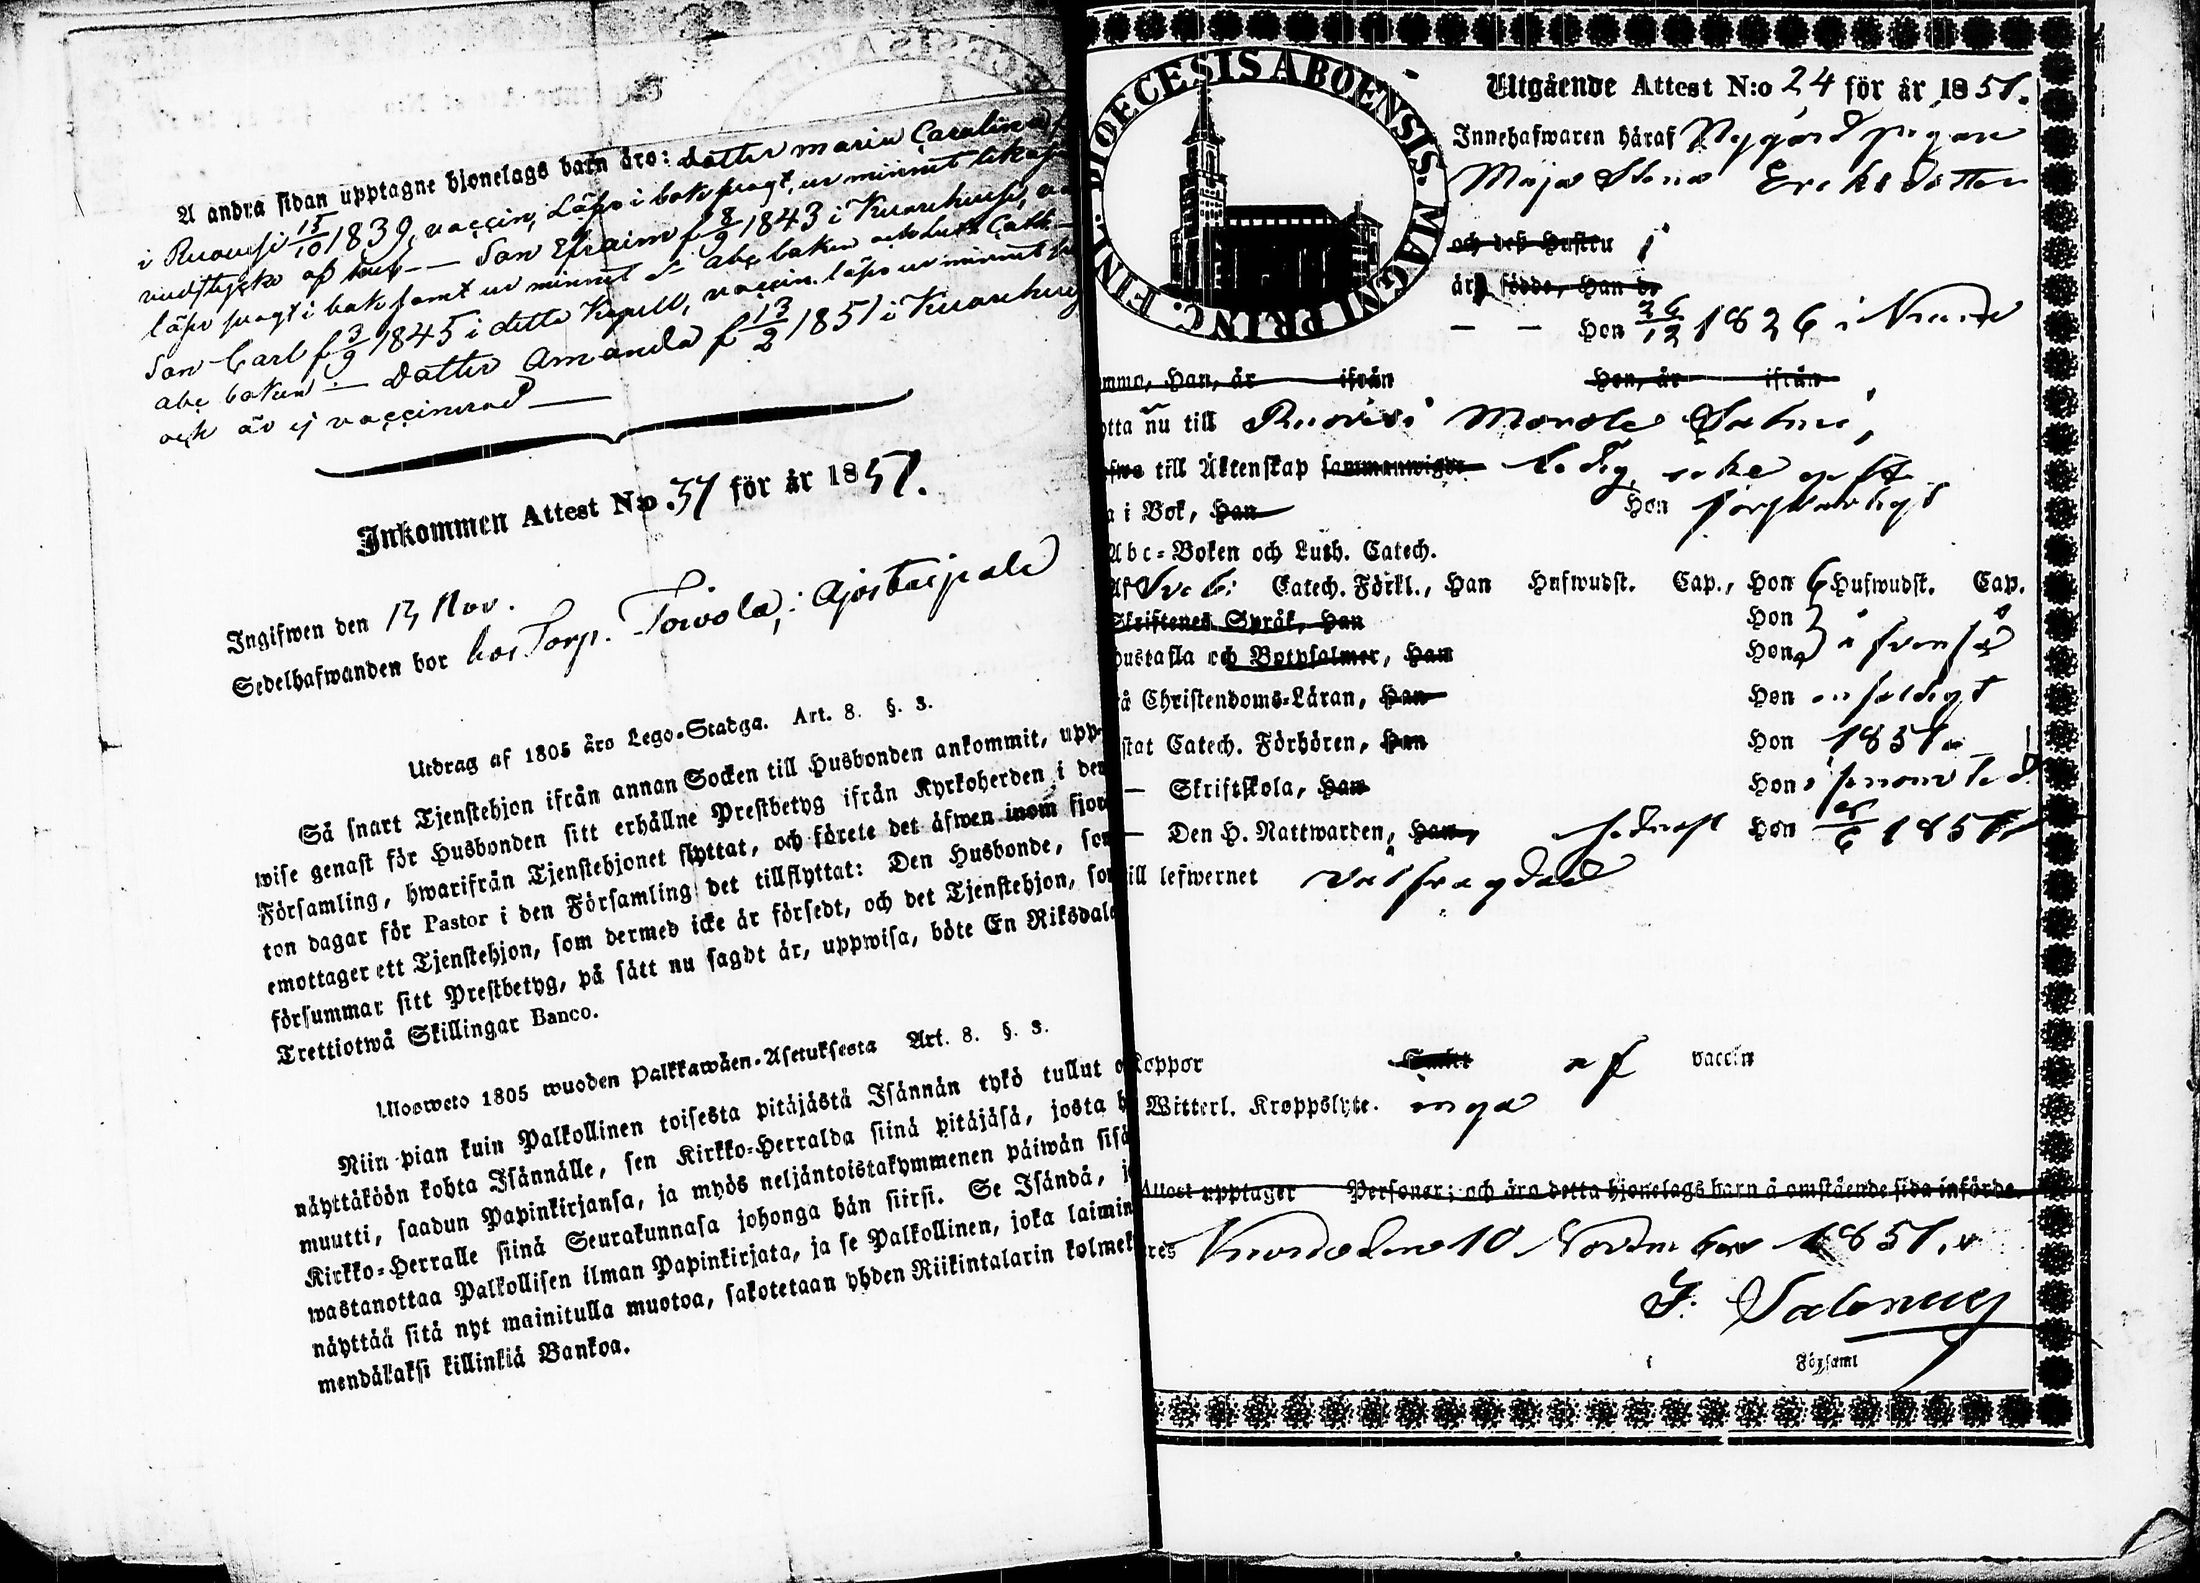 A andra sidan upptagne hjonelags barn äro: Dotter Maria Carolina f
i Ruovesi 15/10 1839, vaccin, Läser i bok svagt, ur minnet
Son Efraim f 8/9 1843 i Kuorehvesi,
läser svagt i bok samt ur minnet abc boken och Luth Cath
Son Carl f 3/9 1845 i detta Kapell, vaccin. läser ur minnet
abc boken — Dotter Amanda f 13/2 1851 i Kuorehvesi
och är ej vaccinerad —
Inkommen Attest N:o 37 för år 1851.
Ingifwen den 13 Nov.
Sedelhafwanden bor hos Torp. Toivola, i
Utdrag af 1805 års Lego-Stadga. Art. 8. §. 3.
Så snart Tjenstehjon ifrån annan Socken till Husbonden ankommit, upp-
wise genast för Husbonden sitt erhållne Prestbetyg ifrån Kyrkoherden i den
Församling, hwarifrån Tjenstehjonet flyttat, och förete det äfwen inom fjor
ton dagar för Pastor i den Församling det tillflyttat: Den Husbonde, som
emottager ett Tjenstehjon, som dermed icke är försedt, och det Tjenstehjon, som
försummar sitt Prestbetyg, på sätt nu sagdt är, uppwisa, böte En Riksdale
Trettiotwå Skillingar Banco.
Uloosweto 1805 wuoden Palkkawäen-Asetuksesta Art. 8. §. 3.
Niin pian kuin Palkollinen toisesta pitäjästä Isännän tykö tullut o
näyttäköön kohta Isännälle, sen Kirkko-Herralda siinä pitäjäsä, josta h
muutti, saadun Papinkirjansa, ja myös neljäntoistakymmenen päiwän sisä
Kirkko-Herralle siinä Seurakunnasa johonga hän siirsi. Se Isändä, j
wastanottaa Palkollisen ilman Papinkirjata, ja se Palkollinen, joka laimin
näyttää sitä nyt mainitulla muotoa, sakotetaan yhden Riikintalarin kolmek
mendäkaksi killinkiä Bankoa.
DIOECESIS ABOENSIS. MAGNI PRINC. FINL.
Utgående Attest N:o 24 för år 1851.
Innehafwaren häraf Nygård pigan
Maja Stina Eriksdotter
och deß Hustru
är födde, Han de
— — Hon 26/12 1826 i
mma, Han, är ifrån Hon, är ifrån
otta nu till Ruovesi Morola Salmi,
fwa till Äktenskap sammanwigde ledig, icke
a i Bok, Han Hon försvarligt
Abc-Boken och Luth. Catech.
Af Svebi: Catech. Förkl., Han Hufwudst. Cap., Hon 6 Hufwudst. Cap.
Skriftenes Språk, Han Hon
Hustafla och Botpsalmer, Han Hon
å Christendoms-Läran, Han Hon enfaldigt
stat Catech. Förhören, Han Hon 1851
— Skriftskola, Han Hon
— Den H. Nattwarden, Han, sednast Hon /6 1851
ill lefwernet välfrägdad
Koppor af vaccin
Witterl. Kroppslyte. inga
Attest upptager Personer; och äro detta hjonelags barn å omstående sida införde.
res den 10 November 1851.
i Församl